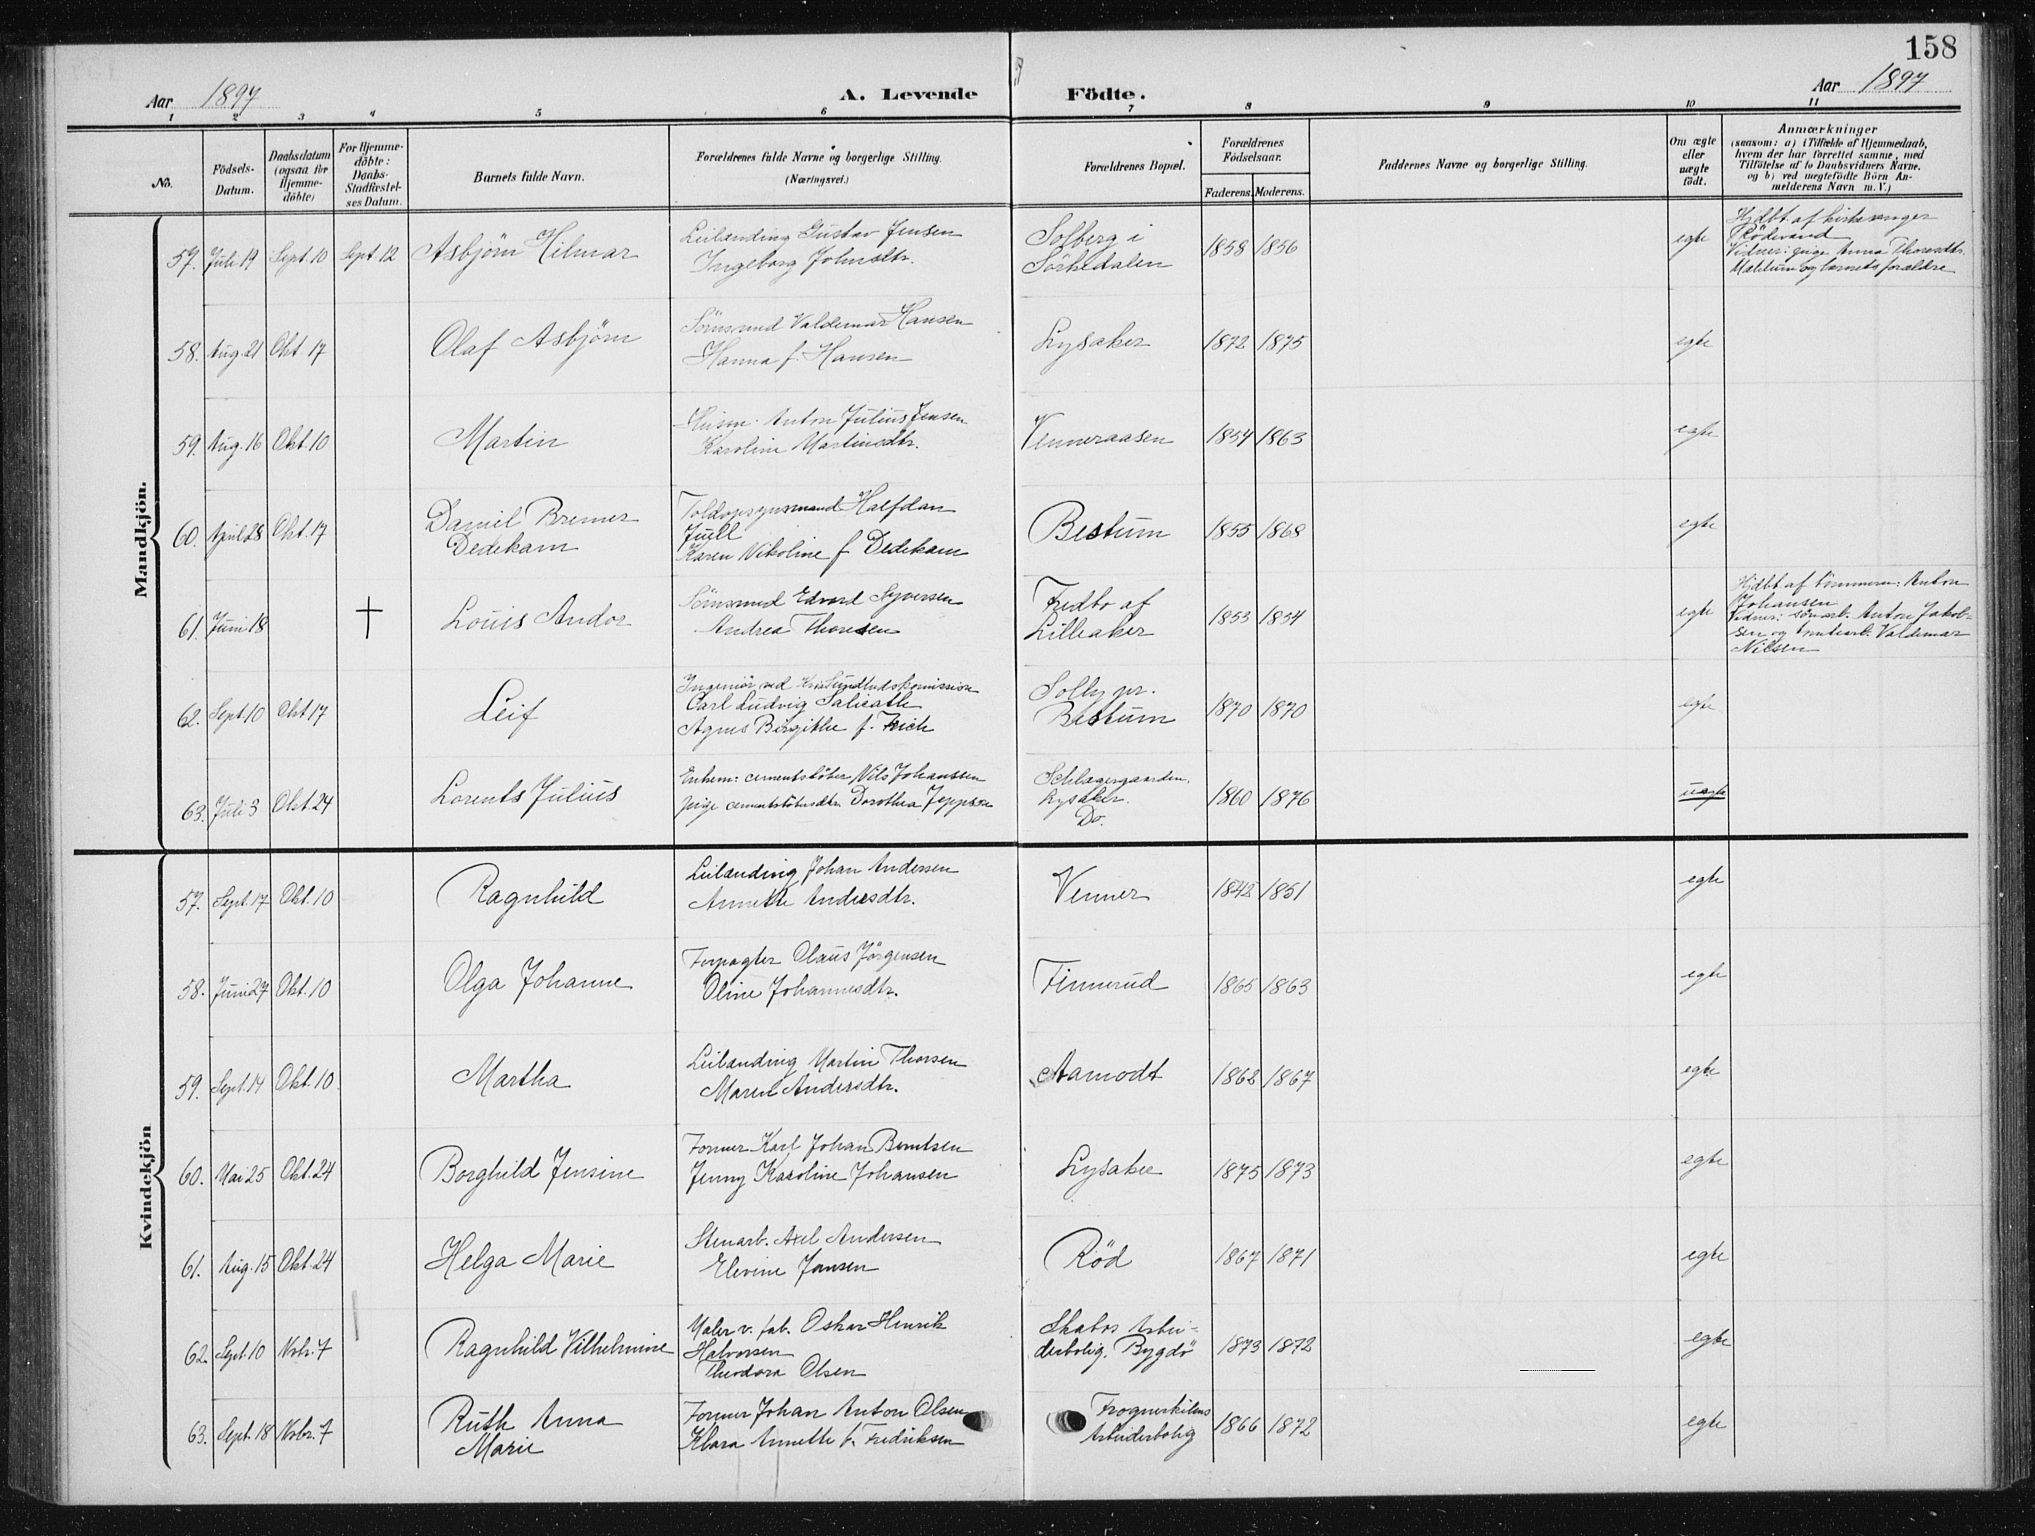 158
Aar 1897 A. Levende Födte. Aar 1897
1 2 3 4 5 6 7 8 9 10 11
No. Födsels-Datum. Daabsdatum (ogsaa for Hjemme-döbte) For Hjemme-döbte: Daabs-Stadfæstel-ses Datum. Barnets fulde Navn. Forældrenes fulde Navne og borgerlige Stilling. (Næringsvei.) Forældrenes Bopæl. Forældrenes Födselsaar. Faderens. Moderens. Faddernes Navne og borgerlige Stilling. Om ægte eller uægte födt. Anmærkninger (saasom: a) i Tilfælde af Hjemmedaab, hvem der har forrettet samme, med Tilföielse af to Daabsvidners Navne. og b) ved uægtefödte Börn An-melderens Navn m. V.)
Mandkjön.
57. Juli 19 Sept. 10 Sept 12 Asbjörn Hilmar
Leilænding Gustav Jensen
Ingeborg Johnsdtr.
Solberg i
Sörkedalen
1858 1856 egte
Hjdbt. af kirkesanger
Rödevand
Vidner: pige Anna Thoresdtr.
og barnets forældre
58. Aug. 21 Okt 17 Olaf Asbjörn
Valdemar Hansen
Hanna f. Hansen
Lysaker 1872 1875 egte
59. Aug. 16 Okt. 10 Martin
Husm. Anton Julius Jensen
Karoline Martinsdtr.
Venneraasen 1854 1863 egte
60. April 28 Okt. 17 Daniel Bremer
Dedekam
Toldopsynsmand Halfdan
Juell
Karen Nikoline f Dedekam
Bestum 1855 1868 egte
61. Juni 18 † Louis Andor
Edvard Syversen
Andrea Thoresen
Fredbo af
Lilleaker
1853 1854 egte
Hjdbt. af tömmerm. Anton
Johansen
Vidner: Anton Jakob-
sen og Valdemar
Nilsen
62. Sept. 10 Okt 17 Leif
Ingeniör ved
Carl Ludvig Salicath
Agnes Birgithe f.
Solby pr.
Bestum
1870 1870 egte
63. Juli 3 Okt. 24 Lorents Julius
Enkem: cementstöber Nils Johanssen
pige cementstöbersdtr. Dorothea Jeppsen
Schlagergaarden.
Lysaker.
Do.
1860 1876 uegte
Kvindekjön
57. Sept. 17 Okt. 10 Ragnhild
Leilænding Johan Andersen
Annethe Andersdtr.
Venner 1842 1851 egte
58. Juni 27 Okt. 10 Olga Johanne
Forpagter Olaus Jörgensen
Oline Johannesdtr.
Finnerud 1865 1863 egte
59. Sept. 14 Okt. 10. Martha
Leilænding Martin Thorsen
Maren Andersdtr.
Aamodt 1862 1867 egte
60. Mai 25 Okt. 24 Borghild Jensine
Former Karl Johan Berntsen
Jenny Karoline Johansen
Lysaker 1875 1873 egte
61. Aug. 15 Okt. 24 Helga Marie
Stenarb. Axel Andersen
Elevine Jansen
Röd 1867 1871 egte
62. Sept. 10 Novbr. 7 Ragnhild Vilhelmine
Maler v. fab. Oskar Henrik
Halvorsen
Theodora Olsen
Skabos Arbei-
derbolig. Bygdö
1873 1872 egte
63. Sept. 18 Novbr. 7 Ruth Anna
Marie
Former Johan Anton Olsen
Klara Annette f. Fredriksen
Frognerkilens
Arbeiderbolig
1866 1872 egte